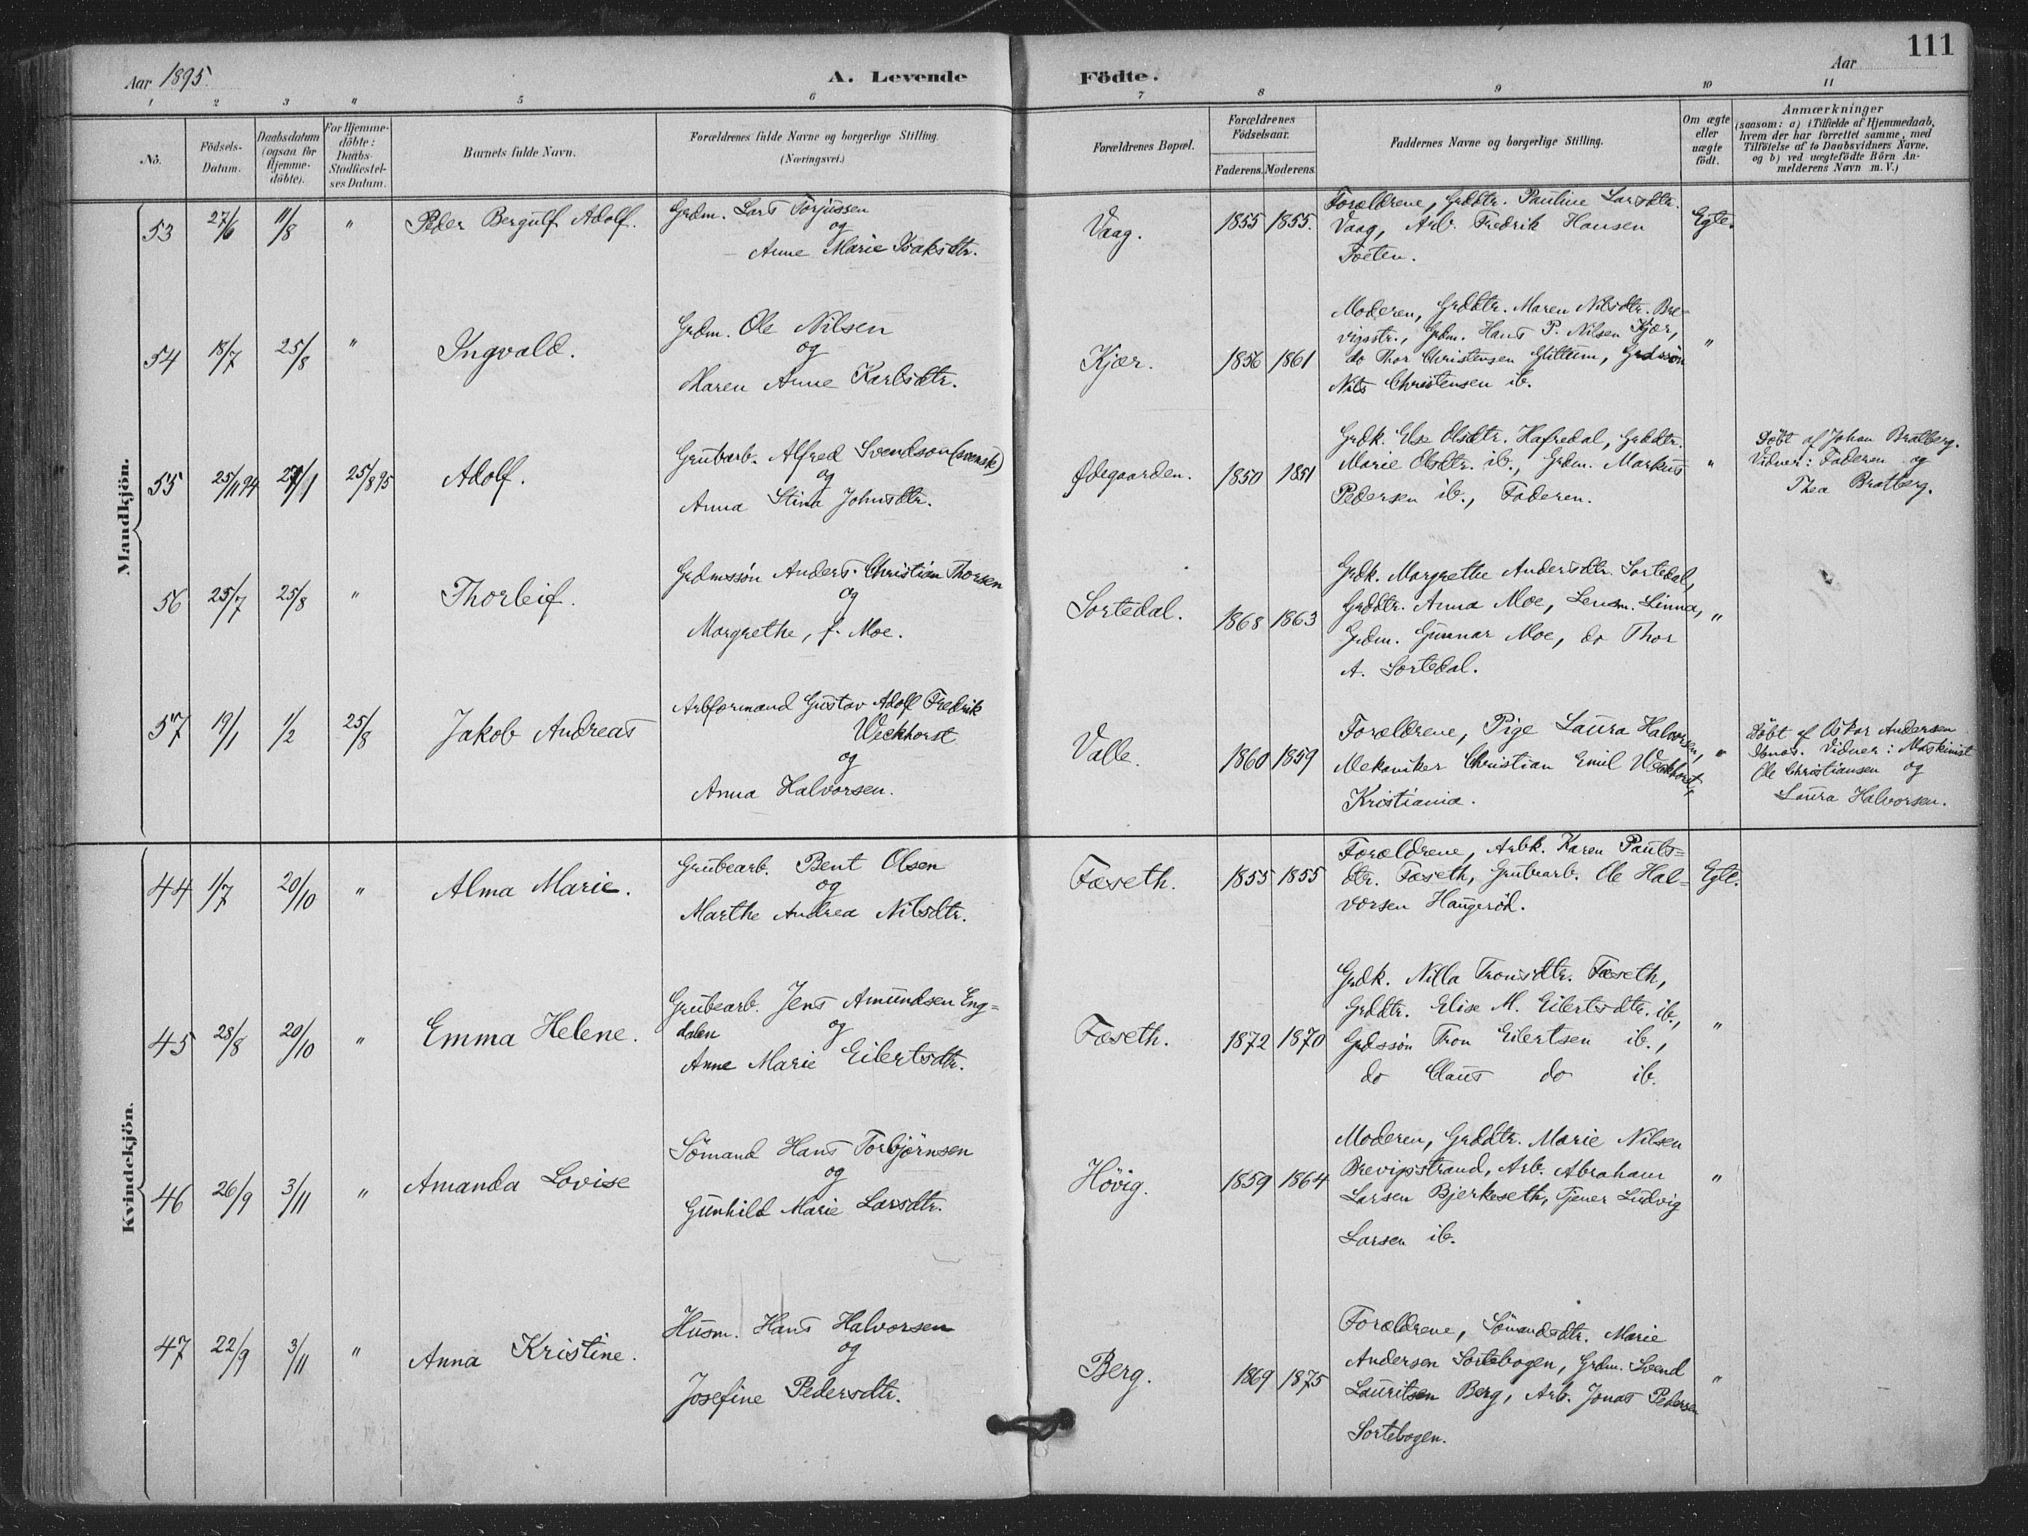 Aar 1895.
A. Levende Födte.
Aar
111
1 2 3 4 5 6 7 8 9 10 11
No.
Födsels-
Datum.
Daabsdatum
(ogsaa for
Hjemme-
döbte).
For Hjemme-
döbte:
Daabs-
Stadfæstel-
ses Datum.
Barnets fulde Navn.
Forældrenes fulde Navne og borgerlige Stilling.
(Næringsvei.)
Forældrenes Bopæl.
Forældrenes
Födselsaar.
Faderens. Moderens.
Faddernes Navne og borgerlige Stilling.
Om ægte
eller
uægte
födt.
Anmærkninger
(saasom: a) i Tilfælde af Hjemmedaab,
hvem der har forrettet samme, med
Tilföielse af to Daabsvidners Navne,
og b) ved uægtefödte Börn An-
melderens Navn m. V.)
Mandkjön.
53 27/6 11/8 " Peder Bergulf Adolf.
Grdm. Lars Torjussen
og
Anne Marie Isaksdtr.
Vaag.
1855 1855.
Forældrene, Grddtr. Pauline Larsdtr.
Vaag, Arb. Fredrik Hansen
Tveten.
Egte.
54 18/7 25/8 " Ingvald.
Grdm. Ole Nilsen
og
Maren Anne Karlsdtr.
Kjær.
1856 1861
Moderen, Grddtr. Maren Nilsdtr. Bre-
vigsstr., Grdm. Hans P. Nilsen Kjær,
do Thor Christensen Glittum, Grdssön
Nils Christensen ib.
"
55 25/11 94 27/1 25/8 95 Adolf.
Grubarb. Alfred Svendson (svensk)
og
Anna Stina Johnsdtr.
Ødegaarden.
1850 1851
Grdk. Else Olsdtr. Hafredal, Grddtr.
Marie Olsdtr. ib., Grdm. Markus
Pedersen ib., Faderen.
"
Döbt af Johan Bratberg.
Vidner: Faderen og
Thea Bratberg.
56 25/7 25/8 " Thorleif.
Grdmssön Anders Christian Thorsen
og
Margrethe, f. Moe.
Sortedal.
1868 1863
Grdk. Margrethe Andersdtr. Sortedal,
Grddtr. Anna Moe, Lensm. Linna,
Grdm. Gunnar Moe, do Thor
A. Sortedal.
"
57 19/1 1/2 25/8 Jakob Andreas
Arbformand Gustav Adolf Fredrik
Weckhorst
og
Anna Halvorsen.
Valle.
1860 1859
Forældrene, Pige Laura Halvorsen,
Mekaniker Christian Emil Weckhorst,
Kristiania.
"
Döbt af Oskar Andersen
Vidner: Maskinist
Ole Christiansen og
Laura Halvorsen.
Kvindekjön.
44 1/7 20/10 " Alma Marie.
Grubearb. Bent Olsen
og
Marthe Andrea Nilsdtr.
Fæseth.
1855 1855
Forældrene, Arbk. Karen Pauls-
dtr. Fæseth, Grubearb. Ole Hal-
vorsen Haugeröd.
Egte.
45 28/8 20/10 " Emma Helene.
Grubearb. Jens Amundsen Eng-
dalen og
Anne Marie Eilertsdtr.
Fæseth.
1872 1870
Grdk. Nilla Tronsdtr. Fæseth,
Grddtr. Elise M. Eilertsdtr. ib.,
Grdssön Tron Eilertsen ib.,
do Claus do ib.
"
46 26/9 3/11 " Amanda Lovise
Sömand Hans Torbjørnsen
og
Gunhild Marie Larsdtr.
Hövig.
1859 1864
Moderen, Grddtr. Marie Nilsen
Brevigsstrand, Arb. Abraham
Larsen Bjerkeseth, Tjener Ludvig
Larsen ib.
"
47 22/9 3/11 " Anna Kristine.
Husm. Hans Halvorsen
og
Josefine Pedersdtr.
Berg.
1869 1875
Forældrene, Sömandsdtr. Marie
Andersen Sortebogen, Grdm. Svend
Lauritsen Berg, Arb. Jonas Pedersen
Sortebogen.
"